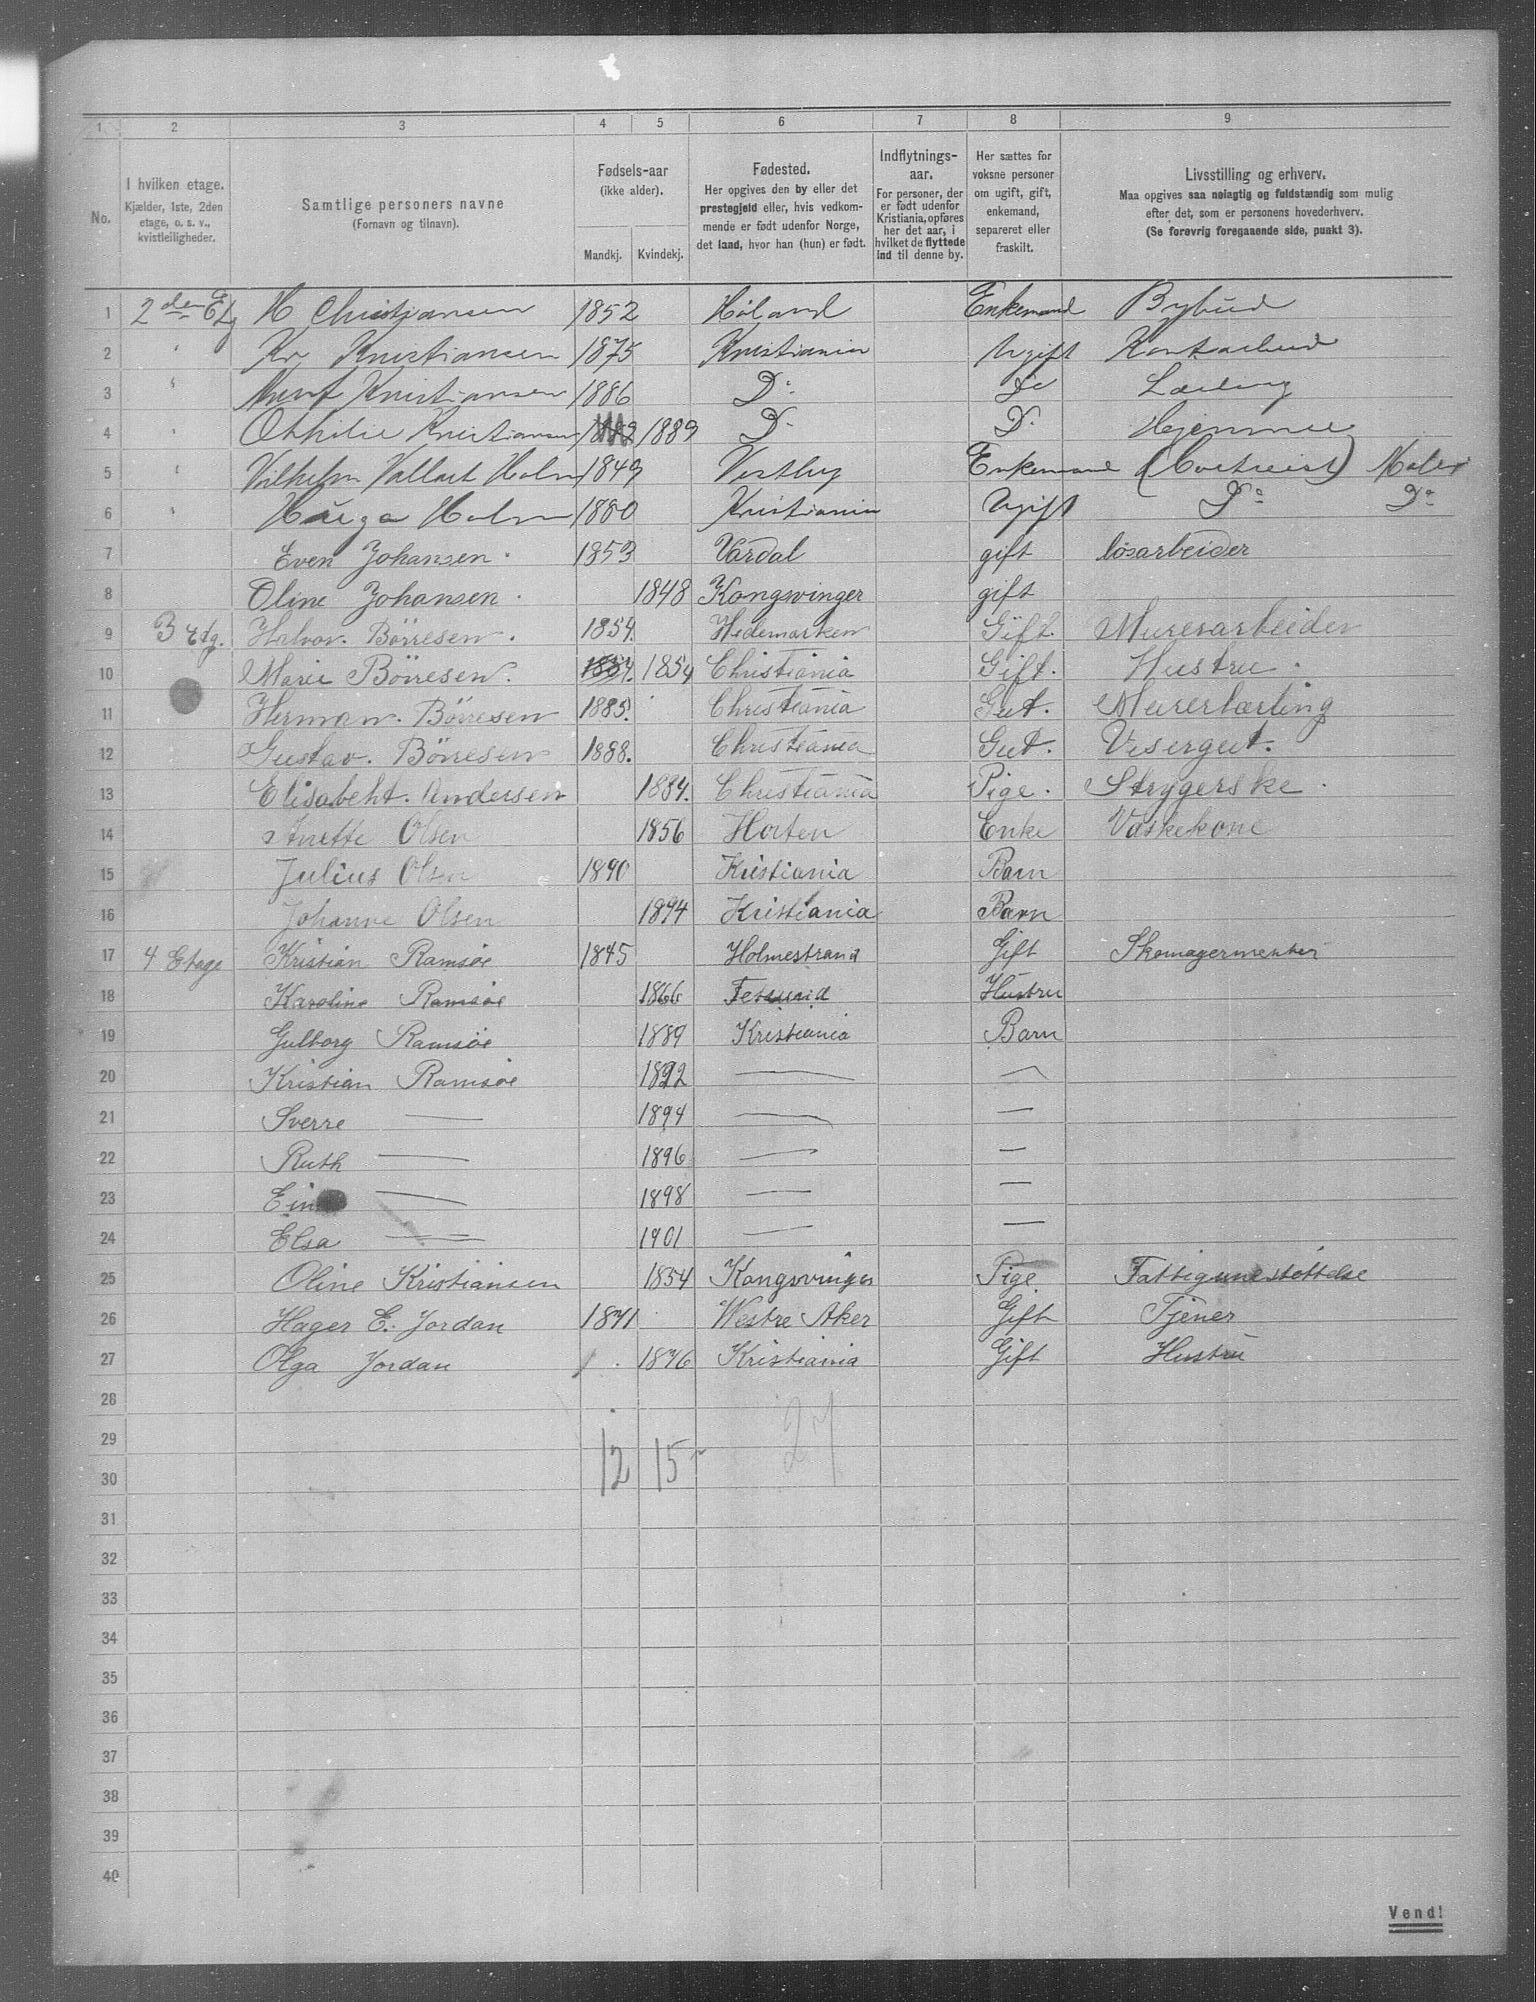 1 2 3 4 5 6 7 8 9
No.
I hvilken etage.
Kjælder, 1ste, 2den
etage, o. s. v.,
kvistleiligheder.
Samtlige personers navne
(Fornavn og tilnavn).
Fødsels-aar
(ikke alder).
Mandkj. Kvindekj.
Fødested.
Her opgives den by eller det
prestegjeld eller, hvis vedkom-
mende er født udenfor Norge,
det land, hvor han (hun) er født.
Indflytnings-
aar.
For personer, der
er født udenfor
Kristiania, opføres
her det aar, i
hvilket de flyttede
ind til denne by.
Her sættes for
voksne personer
om ugift, gift,
enkemand,
separeret eller
fraskilt.
Livsstilling og erhverv.
Maa opgives saa nøiagtig og fuldstændig som mulig
efter det, som er personens hovederhverv.
(Se forøvrig foregaaende side, punkt 3).
1 2den Etg H Christiansen 1852 Høland Enkemand Bybud
2 " Kr Kristiansen 1875 Kristiania Ugift Kontorbud
3 " Kristiansen 1886 Do Do Lærling
4 " Othilie Kristiansen 1889 Do Do Hjemme
5 " Vilhelm Vallart Holm 1849 Vestby Enkemand Maler
6 " Holm 1880 Kristiania Ugift Do Do
7 Even Johansen. 1853 Vardal gift løsarbeider
8 Oline Johansen. 1848 Kongsvinger gift
9 3 etg. Halvor. Börresen. 1854. Hedemarken Gift. Murerarbeider
10 Marie Börresen. 1854. 1854 Christiania Gift. Hustru.
11 Herman. Börresen 1885. Christiania Gut. Murerlærling
12 Gustav. Börresen 1888. Christiania Gut. Visergut.
13 Elisabeht. Andersen 1884. Christiania Pige. Strygerske.
14 Anette Olsen 1856 Horten Enke Vaskekone
15 Julius Olsen 1890 Kristiania Barn
16 Johanne Olsen 1894 Kristiania Barn
17 4 Etage Kristian Ramsøe 1845 Holmestrand Gift Skomagermester
18 Karoline Ramsøe 1866 Fetsund Hustru
19 Gulborg Ramsøe 1889 Kristiania Barn
20 Kristian Ramsøe 1892 — —
21 Sverre — 1894 — —
22 Ruth — 1896 — —
23 — 1898 — —
24 Elsa — 1901 — —
25 Oline Kristiansen 1854 Kongsvinger Pige Fattigunestøttelse
26 Hager E. Jordan 1871 Westre Aker Gift Tjener
27 Olga Jordan 1876 Kristiania Gift Hustru
28
29
12 15 27
30
31
32
33
34
35
36
37
38
39
40
Vend!